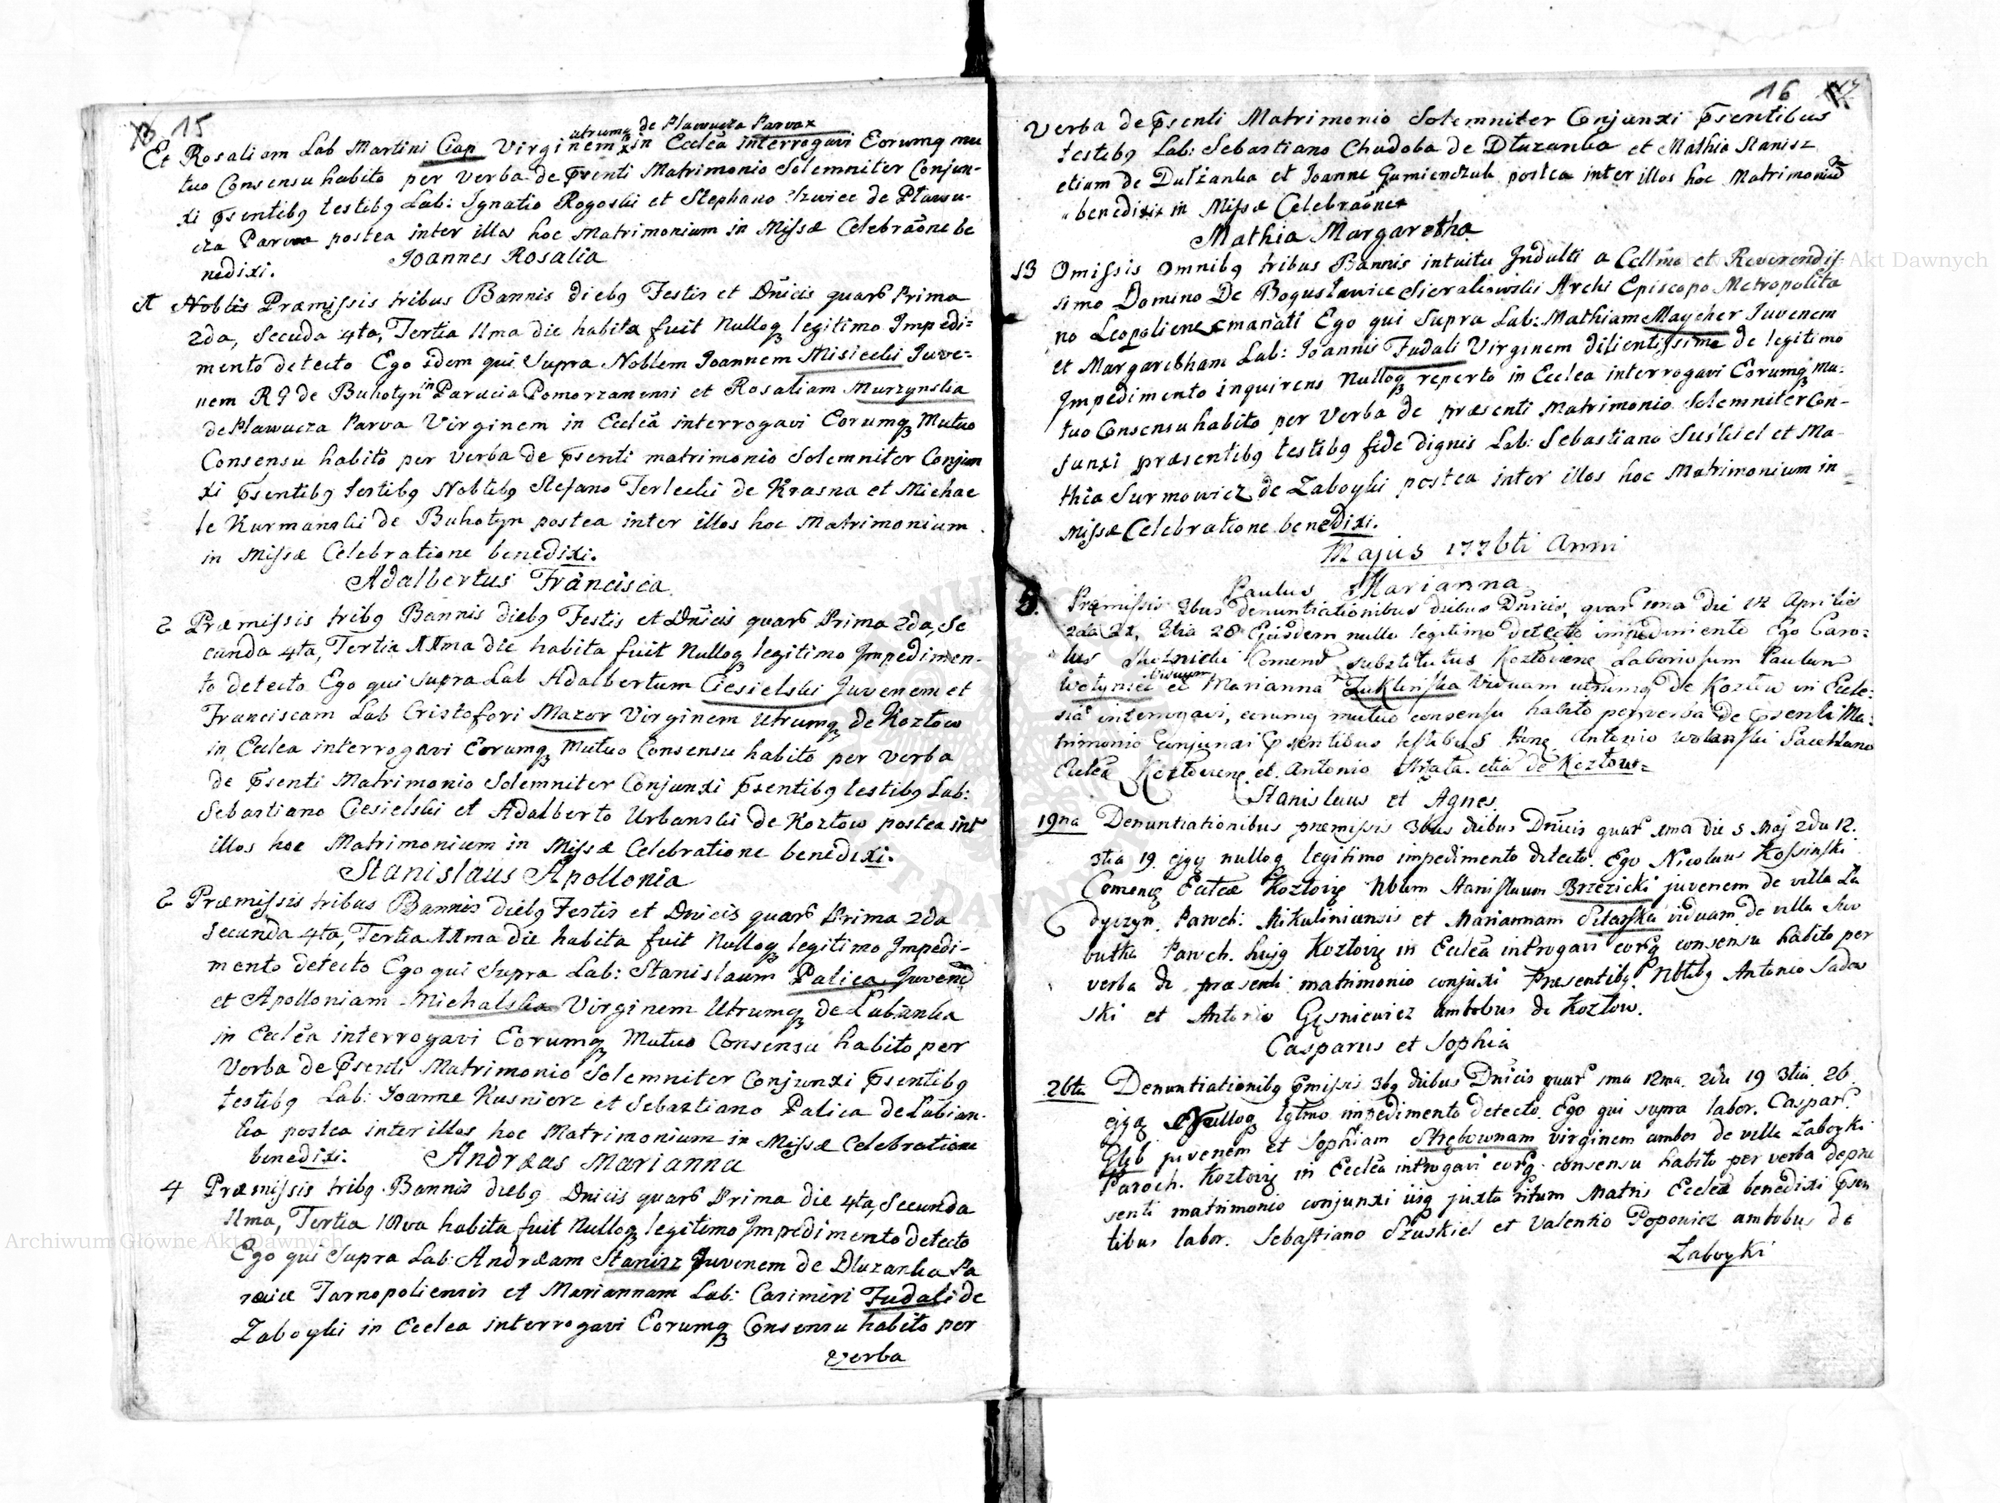 15
utrumq de Plawucza Parva x
Et Rosaliam Lab Martini Ciap Virginem x in Ecclea interrogavi Eorumq mu
tuo Consensu habito per Verba de Psenti Matrimonio Solemniter Conjun-
xi Psentibq testibq Lab: Ignatio Rogoski et Stephano de Plawu-
cza Parva postea inter illos hoc Matrimonium in Missæ Celebraone be
nedixi.
Joannes Rosalia
Noblis Præmissis tribus Bannis diebq Festis et Dnicis quar Prima
2da, Secuda 4ta, Tertia 11ma die habita fuit Nulloq legitimo Impedi-
mento detecto Ego idem qui Supra Noblem Joannem Misicki Juve-
nem de Buhotyn in Parœcia Pomorzanensi et Rosaliam Murzynska
de Plawucza Parva Virginem in Ecclea interrogavi Eorumq Mutuo
Consensu habito per Verba de Psenti matrimonio Solemniter Conjun
xi Psentibq testibq Noblibq Stefano Terlecki de Krasna et Michae
le Kurmanski de Buhotyn postea inter illos hoc Matrimonium
in Missæ Celebratione benedixi.
Adalbertus Francisca
2 Præmissis tribq Bannis diebq Festis et Dnicis quar Prima 2da, Se
cunda 4ta, Tertia 11ma die habita fuit Nulloq legitimo Impedimen-
to detecto Ego qui Supra Lab Adalbertum Ciesielski Juvenem et
Franciscam Lab Cristofori Mazor Virginem Utrumq de Kozlow
in Ecclea interrogavi Eorumq Mutuo Consensu habito per Verba
de Psenti Matrimonio Solemniter Conjunxi Psentibq testibq Lab:
Sebastiano Ciesielski et Adalberto Urbanski de Kozlow postea int
illos hoc Matrimonium in Missæ Celebratione benedixi.
Stanislaus Apollonia
2 Præmissis tribus Bannis diebq Festis et Dnicis quar Prima 2da
Secunda 4ta, Tertia 11ma die habita fuit Nulloq legitimo Impedi-
mento detecto Ego qui Supra Lab: Stanislaum Palica Juvene
et Apolloniam Michalska Virginem Utrumq de Lubanka
in Ecclea interrogavi Eorumq Mutuo Consensu habito per
Verba de Psenti Matrimonio Solemniter Conjunxi Psentibq
testibq Lab: Joanne Kusnierz et Sebastiano Palica de Lubian-
ka postea inter illos hoc Matrimonium in Missæ Celebratione
benedixi.
Andreas Marianna
4 Præmissis tribq Bannis diebq Dnicis quar Prima die 4ta, Secunda
11ma, Tertia 18va habita fuit Nulloq legitimo Impedimento detecto
Ego qui Supra Lab: Andream Stanisz Juvenem de Dluzanka Pa
rœciæ Tarnopoliensis et Mariannam Lab: Casimiri Fudali de
Zaboyki in Ecclea interrogavi Eorumq Consensu habito per
Verba
16
Verba de Psenti Matrimonio Solemniter Conjunxi Psentibus
testibq Lab: Sebastiano Chudoba de Dłuzanka et Mathia Stanisz
etiam de Dułzanka et Joanne Gumienczuk postea inter illos hoc Matrimoniu
benedixi in Missæ Celebraone
Mathia Margaretha
13 Omissis Omnibq tribus Bannis intuitu Indulti a Cellmo et Reverendis-
simo Domino De Bogusławice Sierakowski Archi Episcopo Metropolita
no Leopoliense emanati Ego qui Supra Lab: Mathiam Maycher Juvenem
et Margaretham Lab: Joannis Fudali Virginem dilientissime de legitimo
Impedimento inquirens Nulloq reperto in Ecclea interrogavi Eorumq Mu-
tuo Consensu habito per Verba de præsenti Matrimonio Solemniter Con-
junxi præsentibq testibq fide dignis Lab: Sebastiano Suskiel et Ma-
thia Surmowicz de Zaboyki postea inter illos hoc Matrimonium in
Missæ Celebratione benedixi.
Majus 1776ti Anni
Paulus Marianna
5. Præmissis 3bus denuntiationibus diebus Dnicis, quar 1ma die 14 Aprilis
2da 21, 3tia 28 Ejusdem nullo legitimo detecto impedimento Ego Caro-
lus Comend substitutus Kozloviene Laboriosum Paulum
Wołyniec viduum et Marianna Zuklinska Viduam utrumq de Kozlow in Eccle-
sia interrogavi, eorumq mutuo consensu habito per verba de Psenti Ma-
trimonio Conjunxi Psentibus testibus Antonio Wolanski
Eclea Kozloviene et Antonio etia de Kozlow
Stanislaus et Agnes
19na Denuntiationibus præmissis 3bus diebus Dnicis quar 1ma die 5 Maj 2da 12.
3tia 19 ejqq nulloq legitimo impedimento detecto. Ego Nicolaus Kossinski
Comenq Ecleæ Kozlovię Nblum Stanislaum Brzezicki juvenem de villa La
dyczyn Paroch: Mikuliniensis et Mariannam viduam de villa
butka Paroch. hujq Kozlovię in Ecclea introgavi eorq consensu habito per
verba de præsenti matrimonio conjuxi Præsentibq Nblibq Antonio Sadow
ski et Antonio Gęsniewicz ambobus de Kozlow.
Casparus et Sophia
26ta Denuntiationibq Pmissis 3bq diebus Dnicis quar 1ma 12ma. 2da 19 3tia 26
ejqq Nulloq lgtmo impedimento detecto. Ego qui supra labor. Caspar
Głąb juvenem et Sophiam Strębownam virginem ambos de villa Zaboyki
Paroch. Kozlovię in Ecclea introgavi eorq consensu habito per verba de præ
senti matrimonio conjunxi iisq juxta ritum Matris Ecclea benedixi Psen
tibus labor. Sebastiano Szuskiel et Valentio Popowicz ambobus de
Zaboyki
Archiwum Główne Akt Dawnych